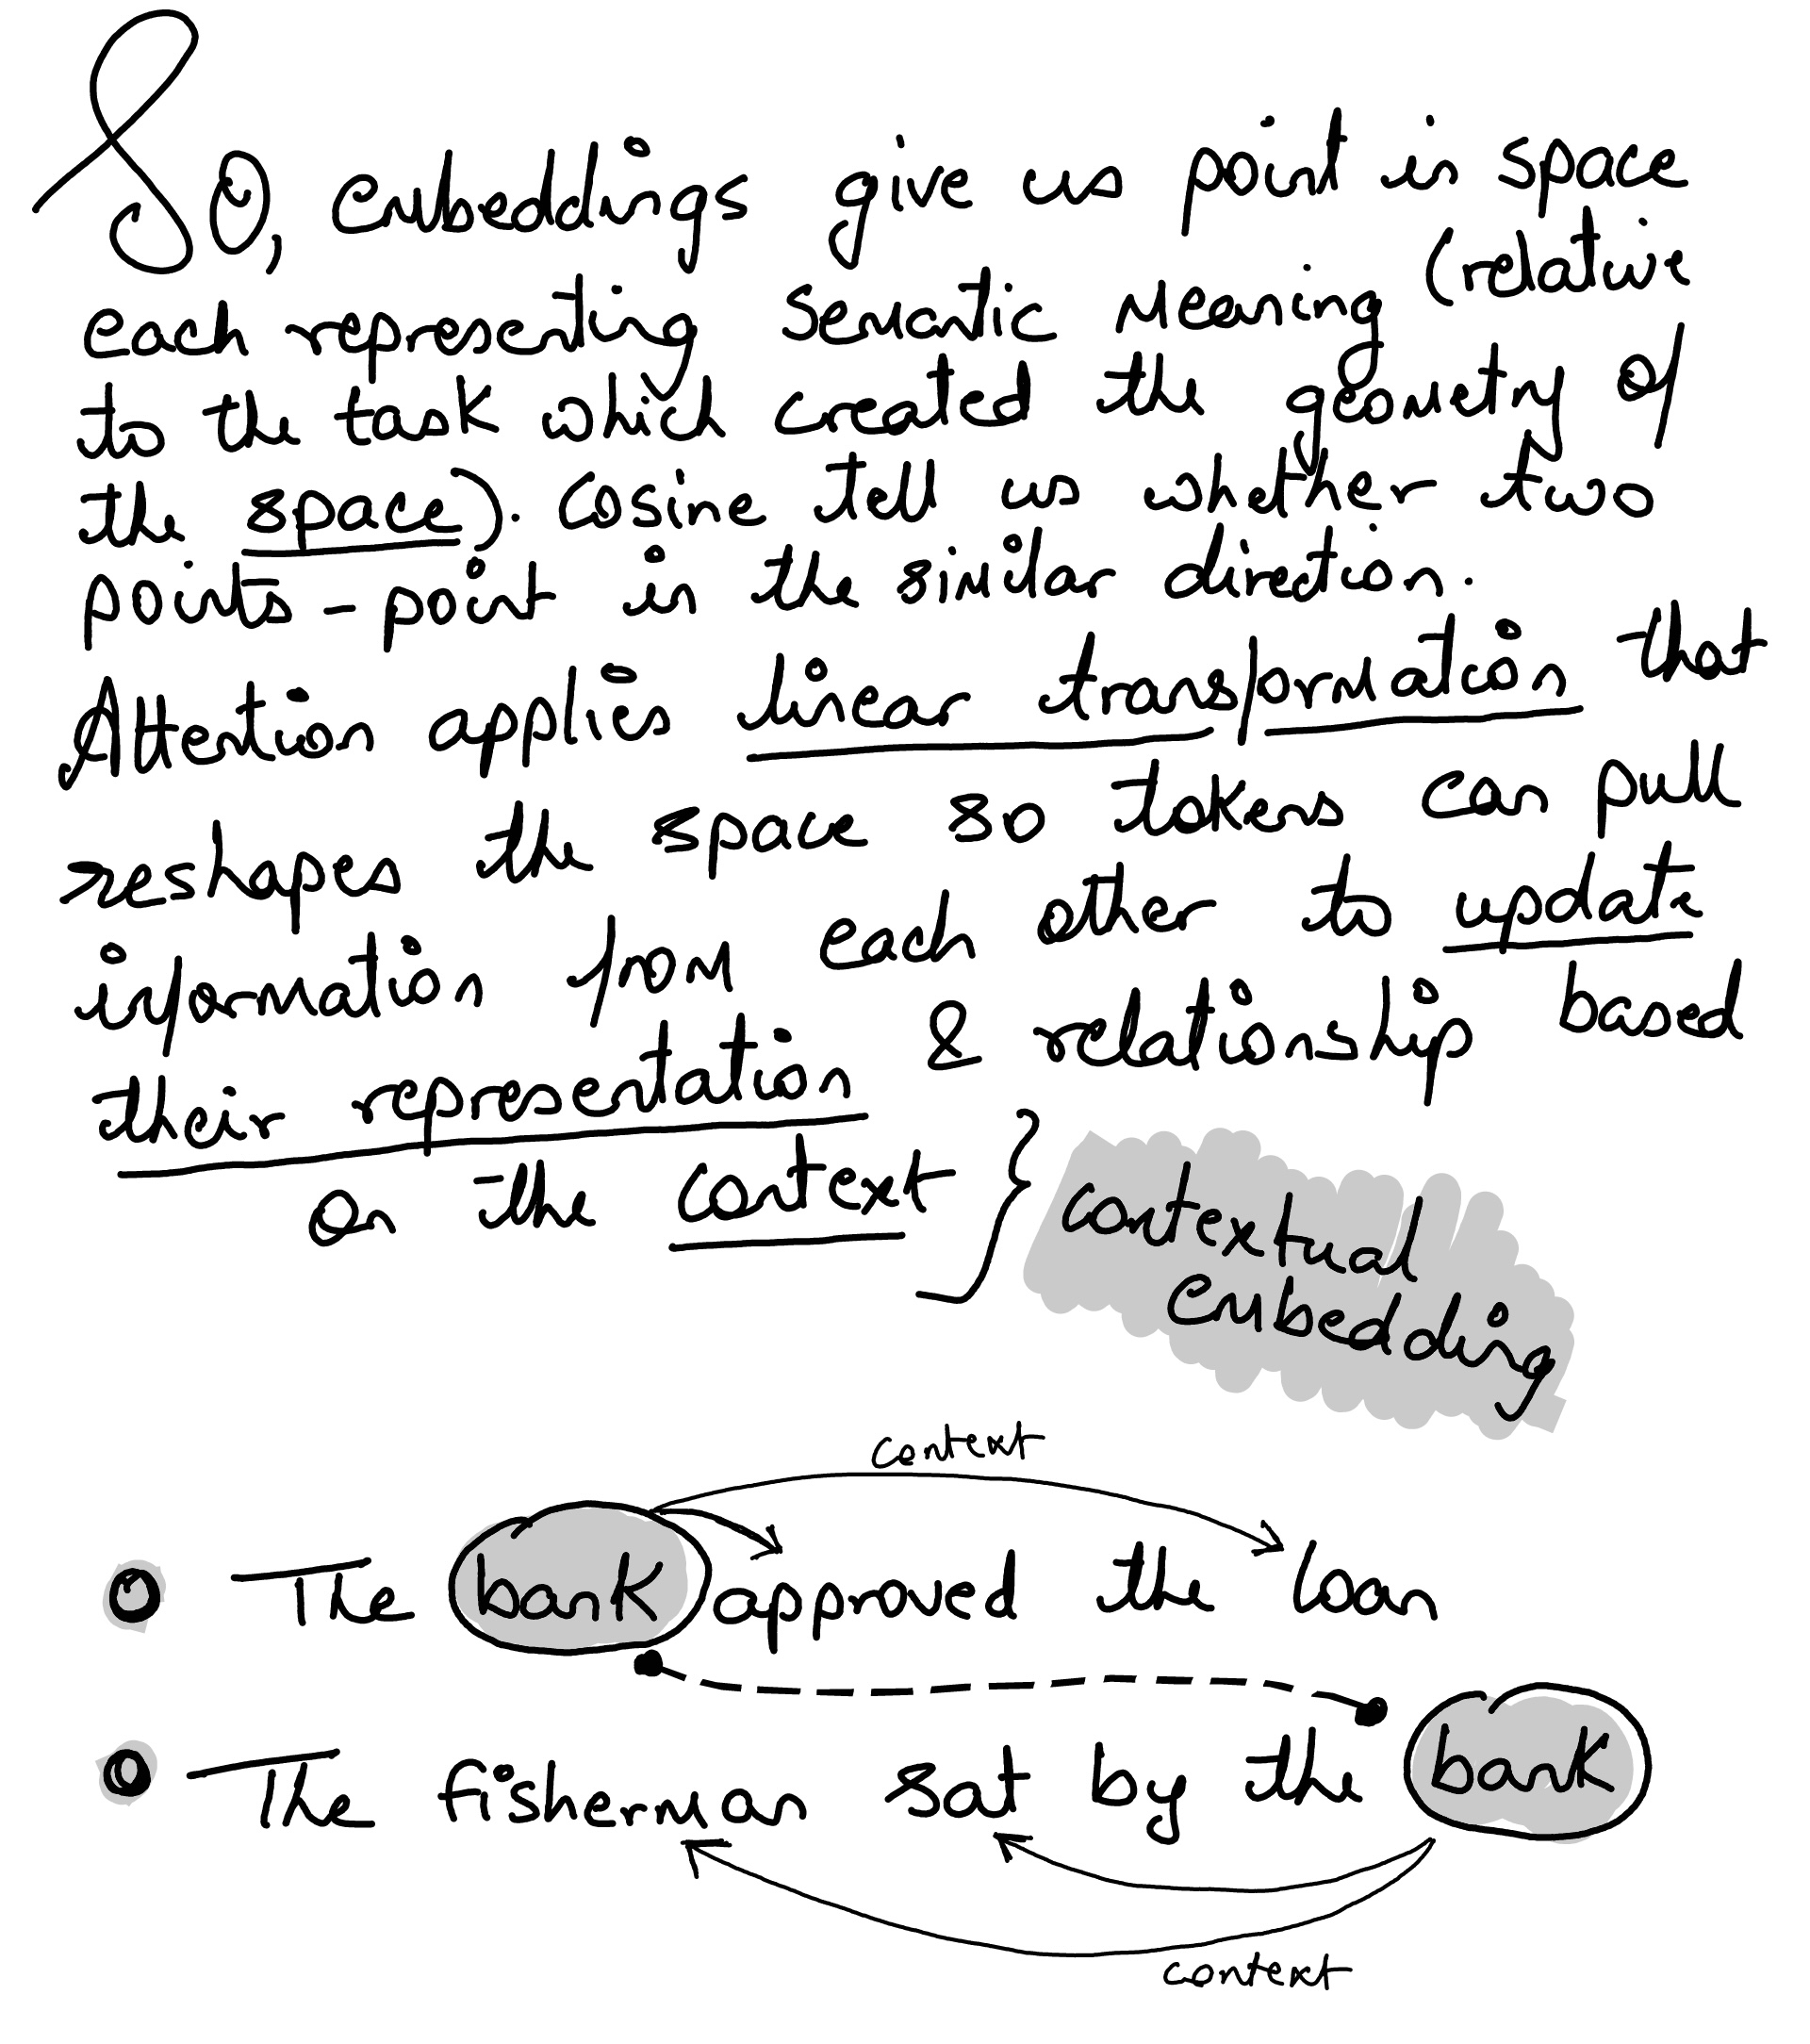 So, embeddings give us point in space
each representing semantic meaning (relative
to the task which created the geometry of
the space). Cosine tell us whether two
points - point in the similar direction.
Attention applies linear transformation that
reshapes the space so tokens can pull
information from each other to update
their representation & relationship based
on the context
contextual
embedding
context
The bank approved the loan
The fisherman sat by the bank
context